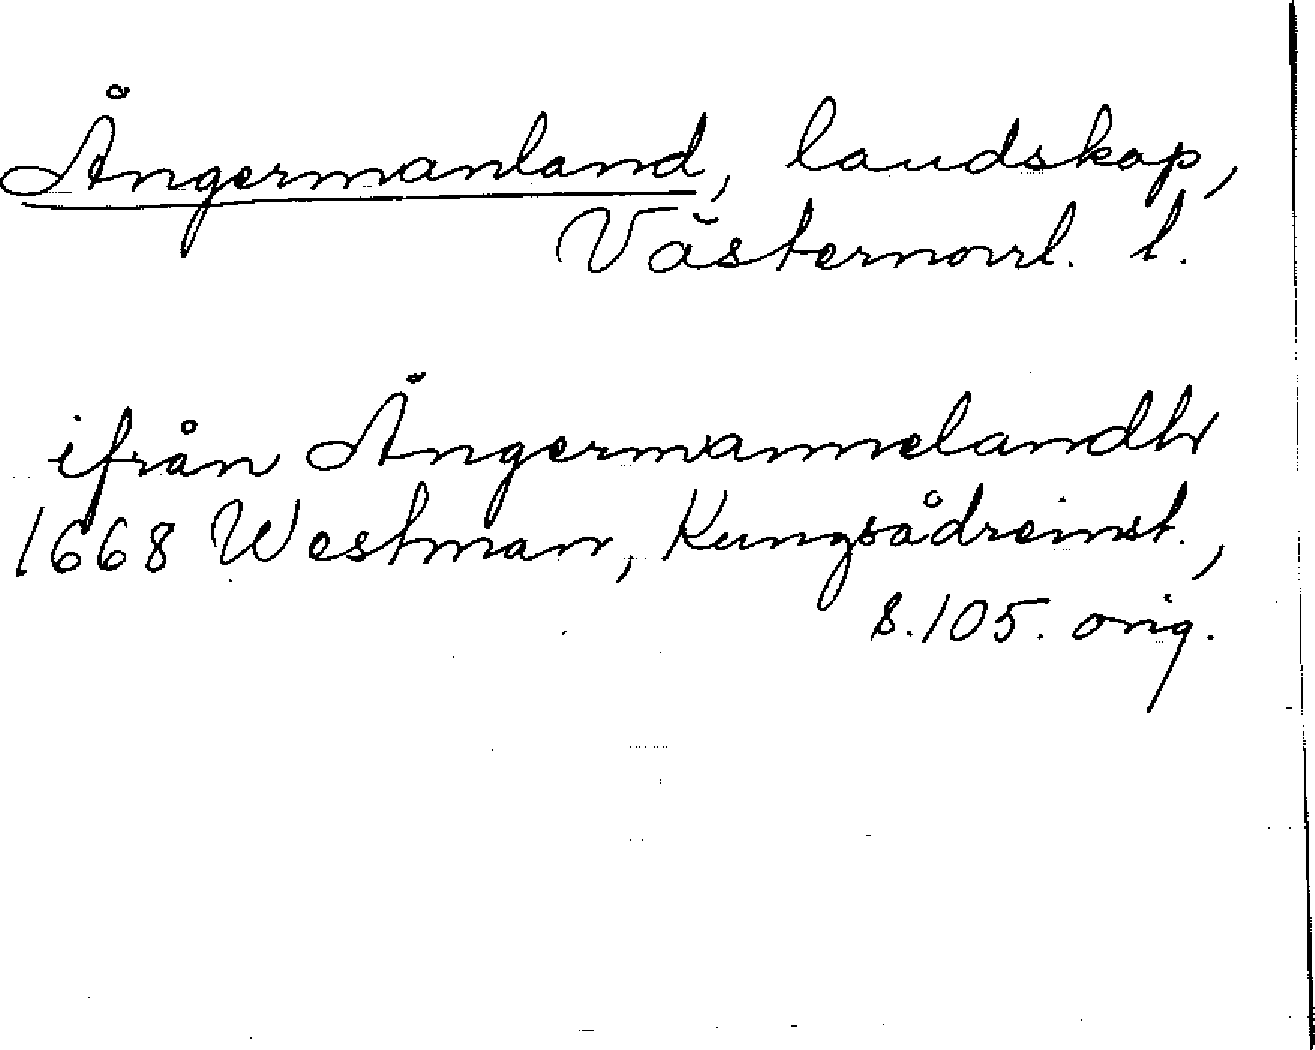 Ångermanland, landskap,
Västernorrl. l.
ifrån Ångermannelandh
1668 Westman, Kungsådreinst.,
s. 105. orig.